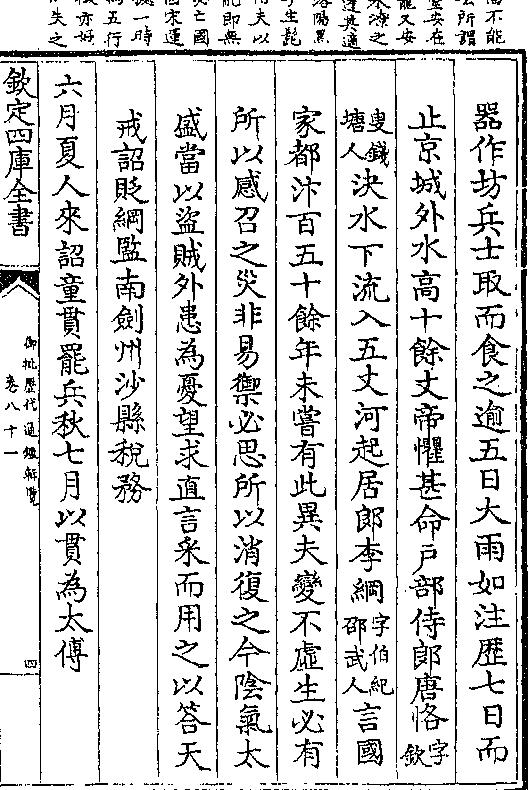 不能
所謂
安在
龍又安
水潦之
其適
洛陽黑
生髭
夫以
能即無
亡國
宋運
一時
為五行
亦好
失之
器作坊兵士取而食之逾五日大雨如注歷七日而
止京城外水高十餘丈帝懼甚命戶部侍郎唐恪字欽
叟錢塘人決水下流入五丈河起居郎李綱字伯紀邵武人言國
家都汴百五十餘年未嘗有此異夫變不虛生必有
所以感召之災非易禦必思所以消復之今陰氣太
盛當以盜賊外患為憂望求直言采而用之以答天
戒詔貶綱監南劍州沙縣稅務
六月夏人來詔童貫罷兵秋七月以貫為太傅
欽定四庫全書
御批歷代通鑑輯覽
卷八十一
四